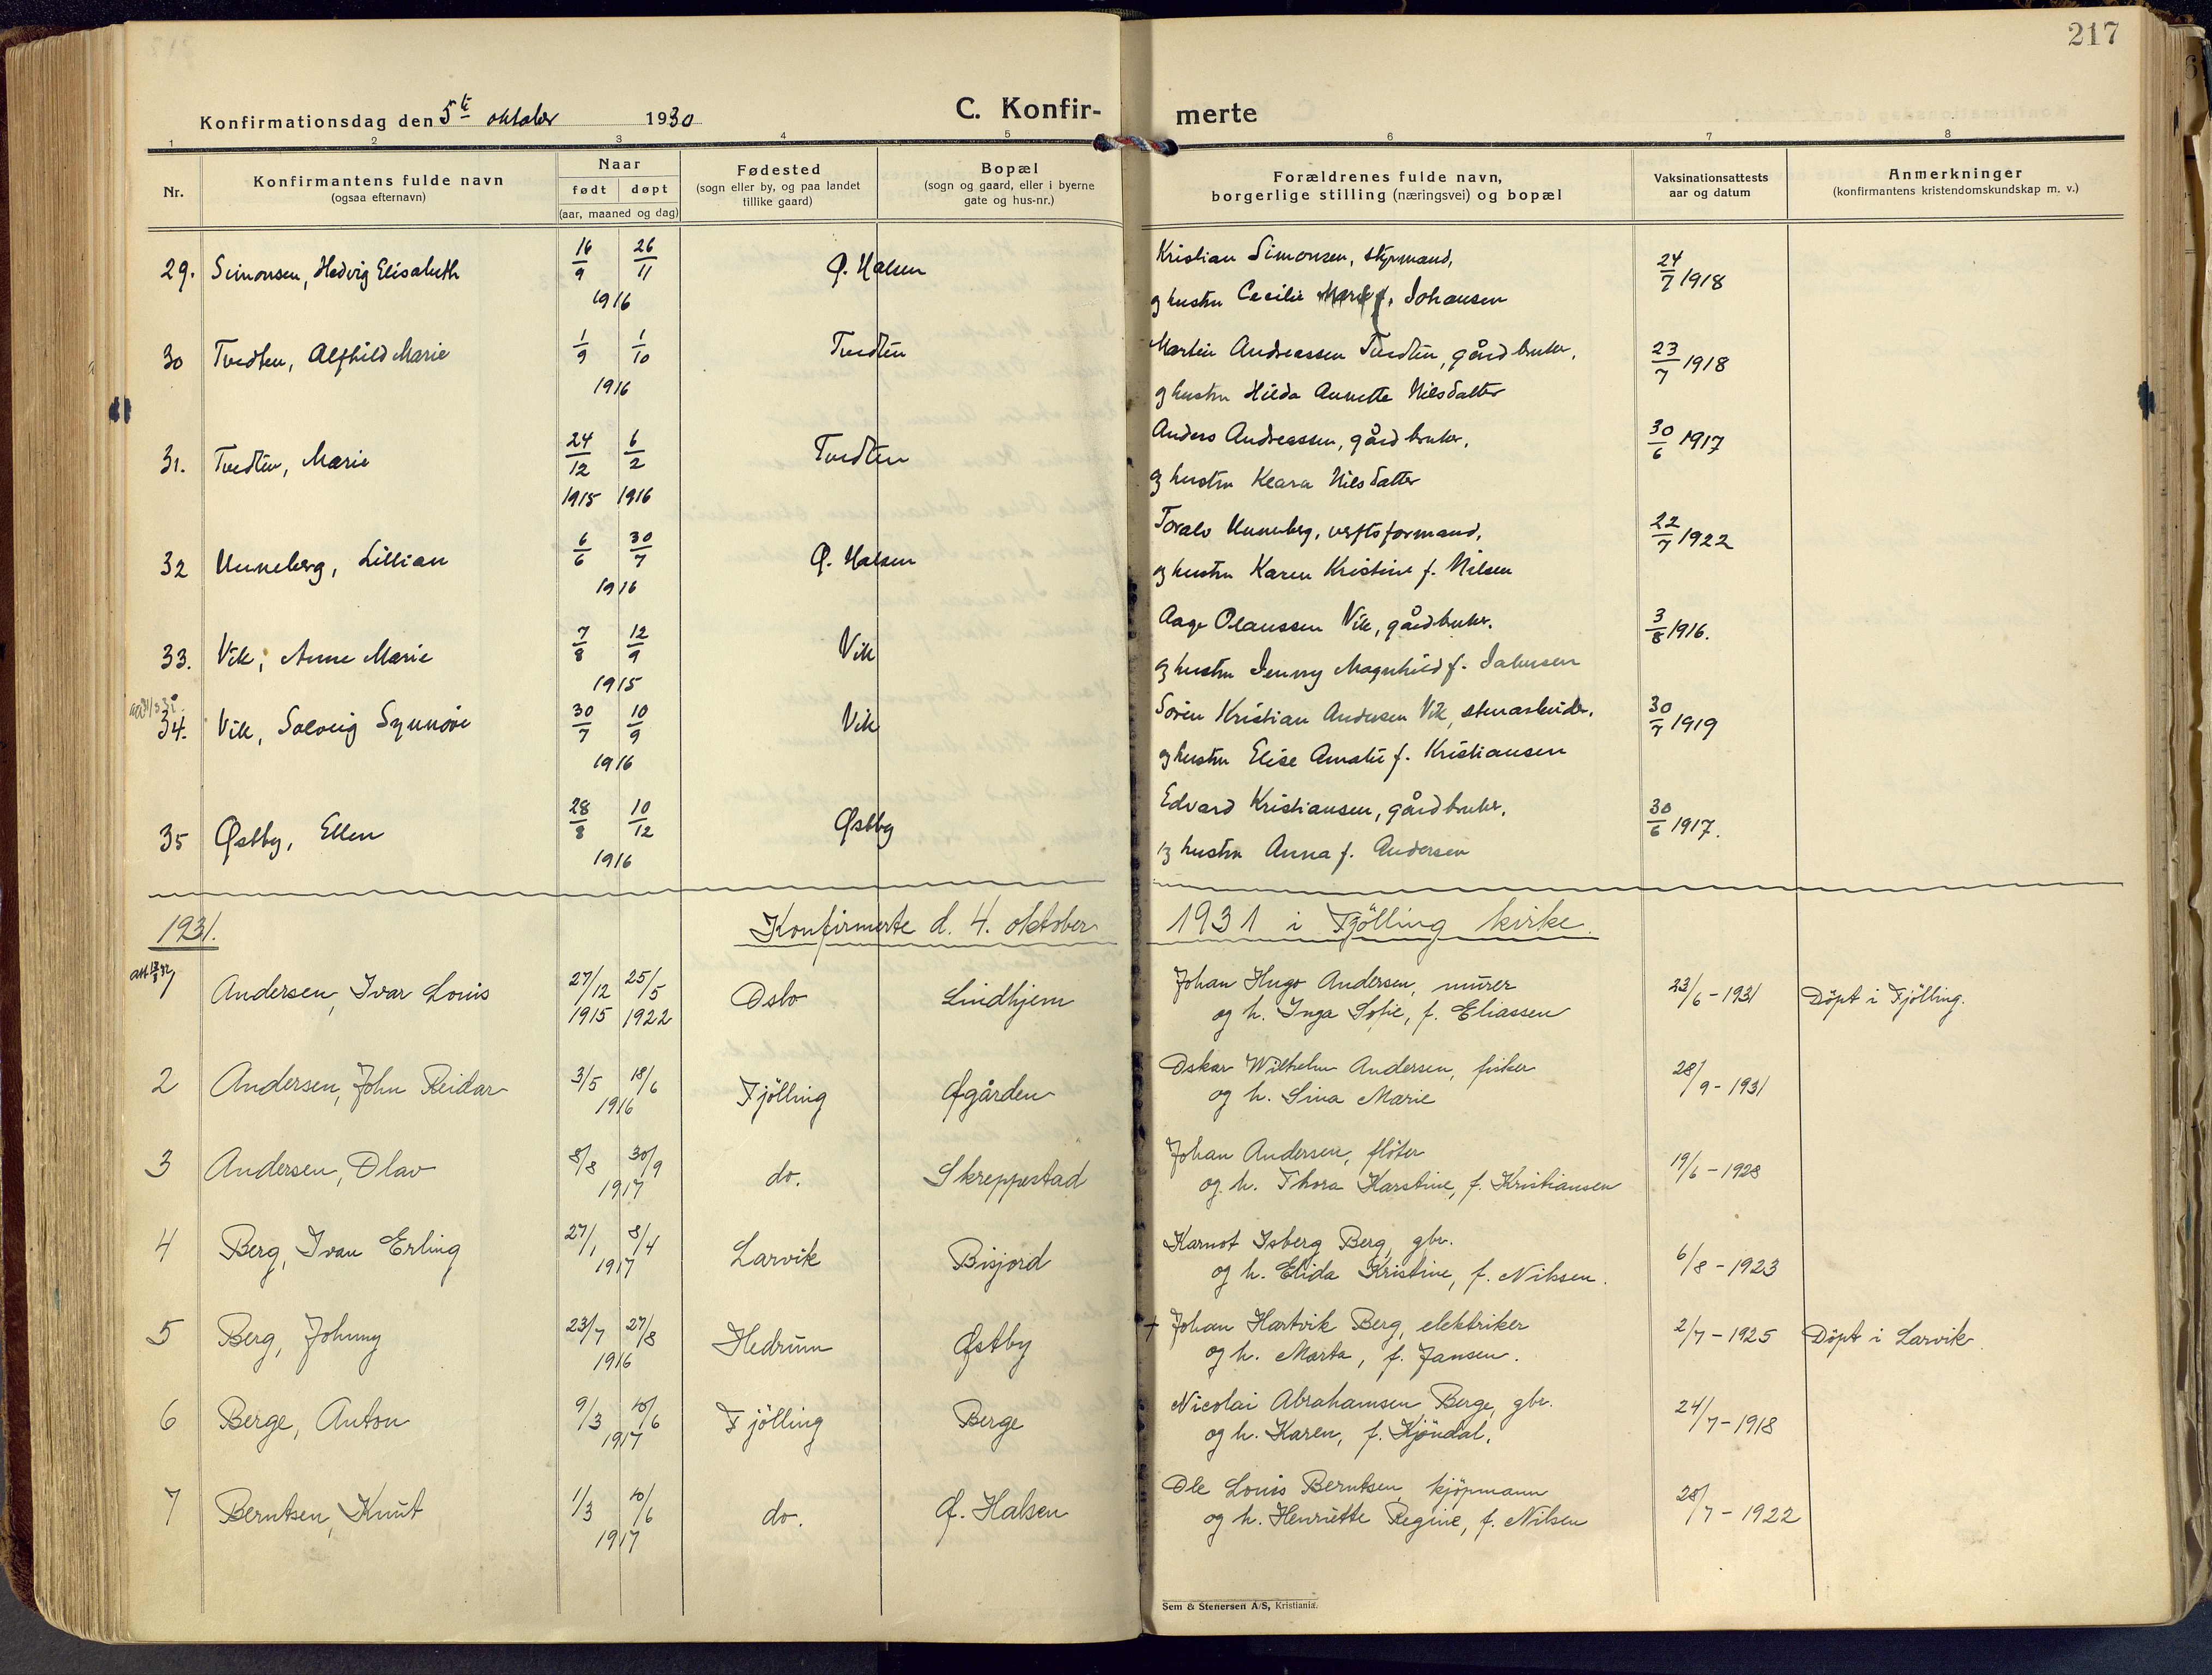 217
Konfirmationsdag den 5te oktober 1930
C. Konfir-
merte
1 2 3 4 5 6 7 8
Nr.
Konfirmantens fulde navn
(ogsaa efternavn)
Naar
født døpt
(aar, maaned og dag)
Fødested
(sogn eller by, og paa landet
tillike gaard)
Bopæl
(sogn og gaard, eller i byerne
gate og hus-nr.)
Forældrenes fulde navn,
borgerlige stilling (næringsvei) og bopæl
Vaksinationsattests
aar og datum
Anmerkninger
(konfirmantens kristendomskundskap m. v.)
29. Simonsen, Hedvig Elisabeth 16/9 26/11 1916 Ø. Halsen
Kristian Simonsen, styrmand,
og hustru Cecilie f. Johansen
24/7 1918
30 Tvedten, Alfhild Marie 1/9 1/10 1916 Tvedten
Martin Andreassen Tvedten, gårdbruker,
og hustru Hilda Annette Nilsdatter
23/7 1918
31. Tvedten, Marie 24/12 1915 6/2 1916 Tvedten
Anders Andreassen, gårdbruker,
og hustru Klara Nilsdatter
30/6 1917
32 Unneberg, Lillian 6/6 30/7 1916 Ø. Halsen
Toralv Unneberg, verftsformand,
og hustru Karen Kristine f. Nilsen
22/7 1922
33. Vik, Anne Marie 7/8 12/9 1915 Vik
Aage Olaussen Vik, gårdbruker.
og hustru Jenny Magnhild f. Jahnsen
3/8 1916.
34. Vik, Solveig Synnøve 30/7 10/9 1916 Vik
Søren Kristian Andersen Vik, stenarbeider,
og hustru Elise Amalie f. Kristiansen
30/7 1919
35 Østby, Ellen 28/8 10/12 1916 Østby
Edvard Kristiansen, gårdbruker,
og hustru Anna f. Andersen
30/6 1917.
1931. Konfirmerte d. 4. oktober 1931 i Tjölling kirke.
1 Andersen, Ivar Louis 27/12 1915 25/5 1922 Oslo Lindhjem
Johan Hugo Andersen, murer
og h. Inga Sofie, f. Eliassen
23/6 - 1931 Döpt i Tjölling.
2 Andersen, John Reidar 3/5 18/6 1916 Tjölling Øgården
Oskar Wilhelm Andersen, fisker
og h. Sina Marie
28/9 - 1931
3 Andersen, Olav 8/8 30/9 1917 do. Skreppestad
Johan Andersen, flöter
og h. Thora Karstine, f. Kristiansen
19/6 - 1928
4 Berg, Ivan Erling 27/1 8/4 1917 Larvik Bisjord
Karnot Isberg Berg, gbr.
og h. Elida Kristine, f. Nilssen.
6/8 - 1923
5 Berg, Johnny 23/7 27/8 1916 Hedrum Østby
+ Johan Hartvik Berg, elektriker
og h. Marta, f. Jansen.
2/7 - 1925 Döpt i Larvik.
6 Berge, Anton 9/3 10/6 1917 Tjölling Berge
Nicolai Abrahamsen Berge, gbr.
og h. Karen, f. Kjöndal.
24/7 - 1918
7 Berntsen, Knut 1/3 10/6 1917 do. Ø. Halsen
Ole Louis Berntsen, kjöpmann
og h. Henriette Regine, f. Nilsen
28/7 - 1922
Sem & Stenersen A/S, Kristiania.